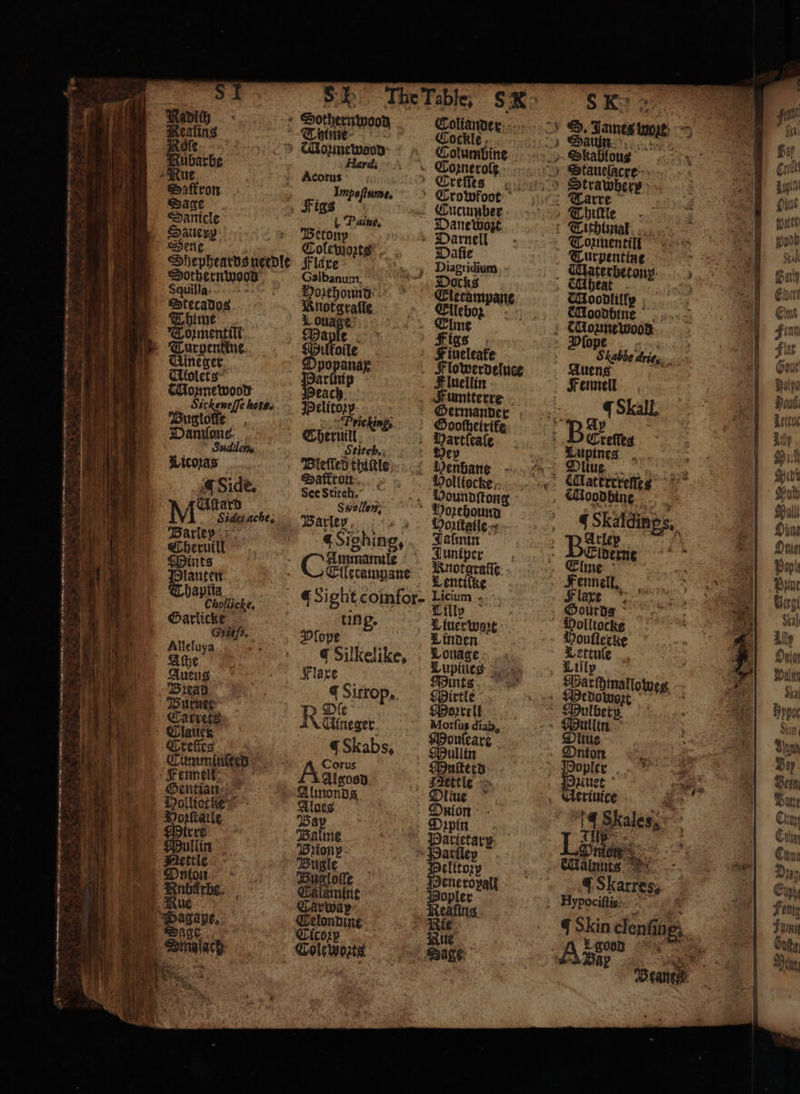 SI
Sk. The Table, SK
SK
Radish
Reasins
Rose
Rubarbe
Rue
Saffron
Sage
Sanicle
Sauery
Sene
Shepheards needle
Sothernwood
Squilla
Stecados
Thime
Tormentill
Turpentine
Uineger
Uiolets
Wormewood
Sickenesse hote.
Buglosse
Damsons
Sudden,
Licoras
¶ Side.
MUstard
Sides ache,
Barley
Cheruill
Mints
Planten
Thapsia
Chollicke,
Garlicke
Griefs,
Alleluya
Ashe
Auens
Bread
Burnet
Carrets
Claues
Cresses
Cumminseed
Fennell
Gentian
Holliocke
Horstaile
Mirre
Mullin
Nettle
Onion
Rubarbe
Rue
Sagape,
Sage
Smalach
Sothernwood
Thime
Wormewood
Hard,
Acorus
Impostume,
Figs
Paine,
Betony
Coleworts
Flaxe
Galbanum,
Horehound
Knotgrasse
Louage
Maple
Milfoile
Opopanax
Parsnip
Peach
Pelitory
Pricking,
Cheruill
Stitch,
Blessed thistle
Saffron
See Stitch.
Swollen,
Barley
¶ Sighing,
CAmmamile
Ellecampane
¶ Sight comfor-
ting.
Ysope
¶ Silkelike,
Flaxe
¶ Sirrop.
ROse
Uineger
¶ Skabs,
ACorus
Algood
Almonds
Aloes
Bay
Balme
Briony
Bugle
Buglosse
Calamint
Carway
Celondine
Cicory
Coleworts
Coliander
Cockle
Columbine
Cornerose
Cresses
Crowfoot
Cucumber
Danewort
Darnell
Dasie
Diagridium
Docks
Elecampane
Ellebor
Elme
Figs
Fiueleafe
Flowerdeluce
Fluellin
Fumiterre
Germander
Goosheirife
Hartsease
Hey
Henbane
Holliocke
Houndstong
Horehound
Horstaile
Jasmin
Juniper
Knotgrasse
Lentiske
Licium
Lilly
Liuerwort
Linden
Louage
Lupines
Mints
Mirtle
Morrell
Morsus diab,
Mouseare
Mullin
Musterd
Nettle
Oliue
Onion
Orpin
Parietary
Parsley
Pelitory
Peneroyall
Popler
Reasins
Rie
Rue
Sage
S. James wort
Sauin
Skabious
Stauesacre
Strawbery
Tarre
Thistle
Tithimal
Tormentill
Turpentine
Waterbetony
Wheat
Woodlilly
Woodbine
Wormewood
Ysope
Skabbe drie,
Auens
Fennell
¶ Skall.
BAy
Cresses
Lupines
Oliue
Watercresses
Woodbine
¶ Skaldings,
BArley
Elderne
Elme
Fennell,
Flaxe
Gourds
Holliocke
Housleeke
Lettuse
Lilly
Marshmallowes
Medowort
Mulbery
Mullin
Oliue
Onion
Popler
Priuet
Ueriuice
¶ Skales,
LIlly
Onions
Walnuts
¶ Skarres,
Hypocistis
¶ Skin clensing;
ALgood
Bay
Beanes